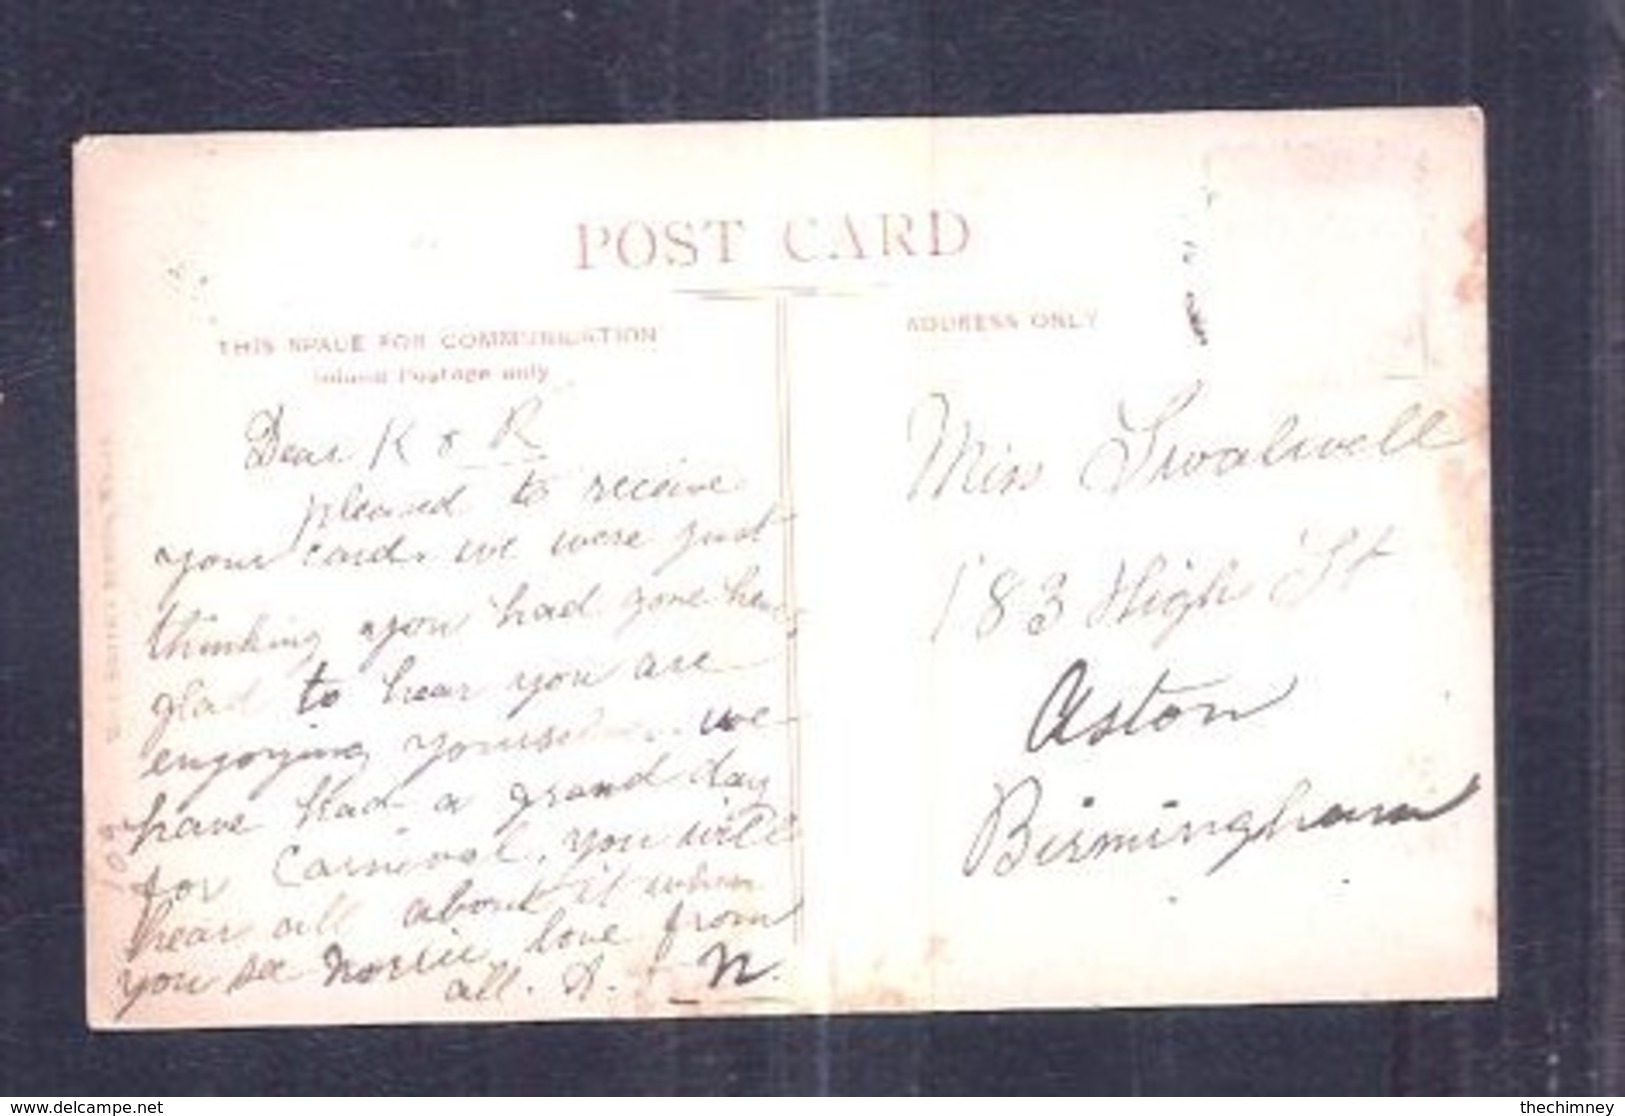 POST CARD
THIS SPACE FOR COMMUNICATION
Inland Postage only
ADDRESS ONLY
Dear K & R
pleased to receive
your card. we were just
thinking you had gone
glad to hear you are
enjoying we
have had a grand day
for Carnival. you will
hear all about it when
you see Norrie love from
all. A. & N.
Miss Swalwell
183 High St
Aston
Birmingham
www.delcampe.net
thechimney